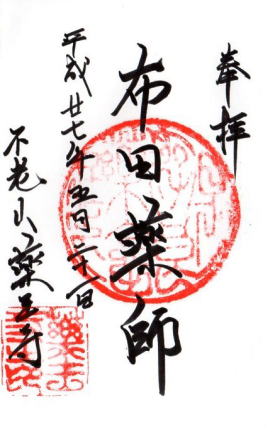 奉拝
布田薬師
平成廿七年五月二十一日
不老山薬王寺